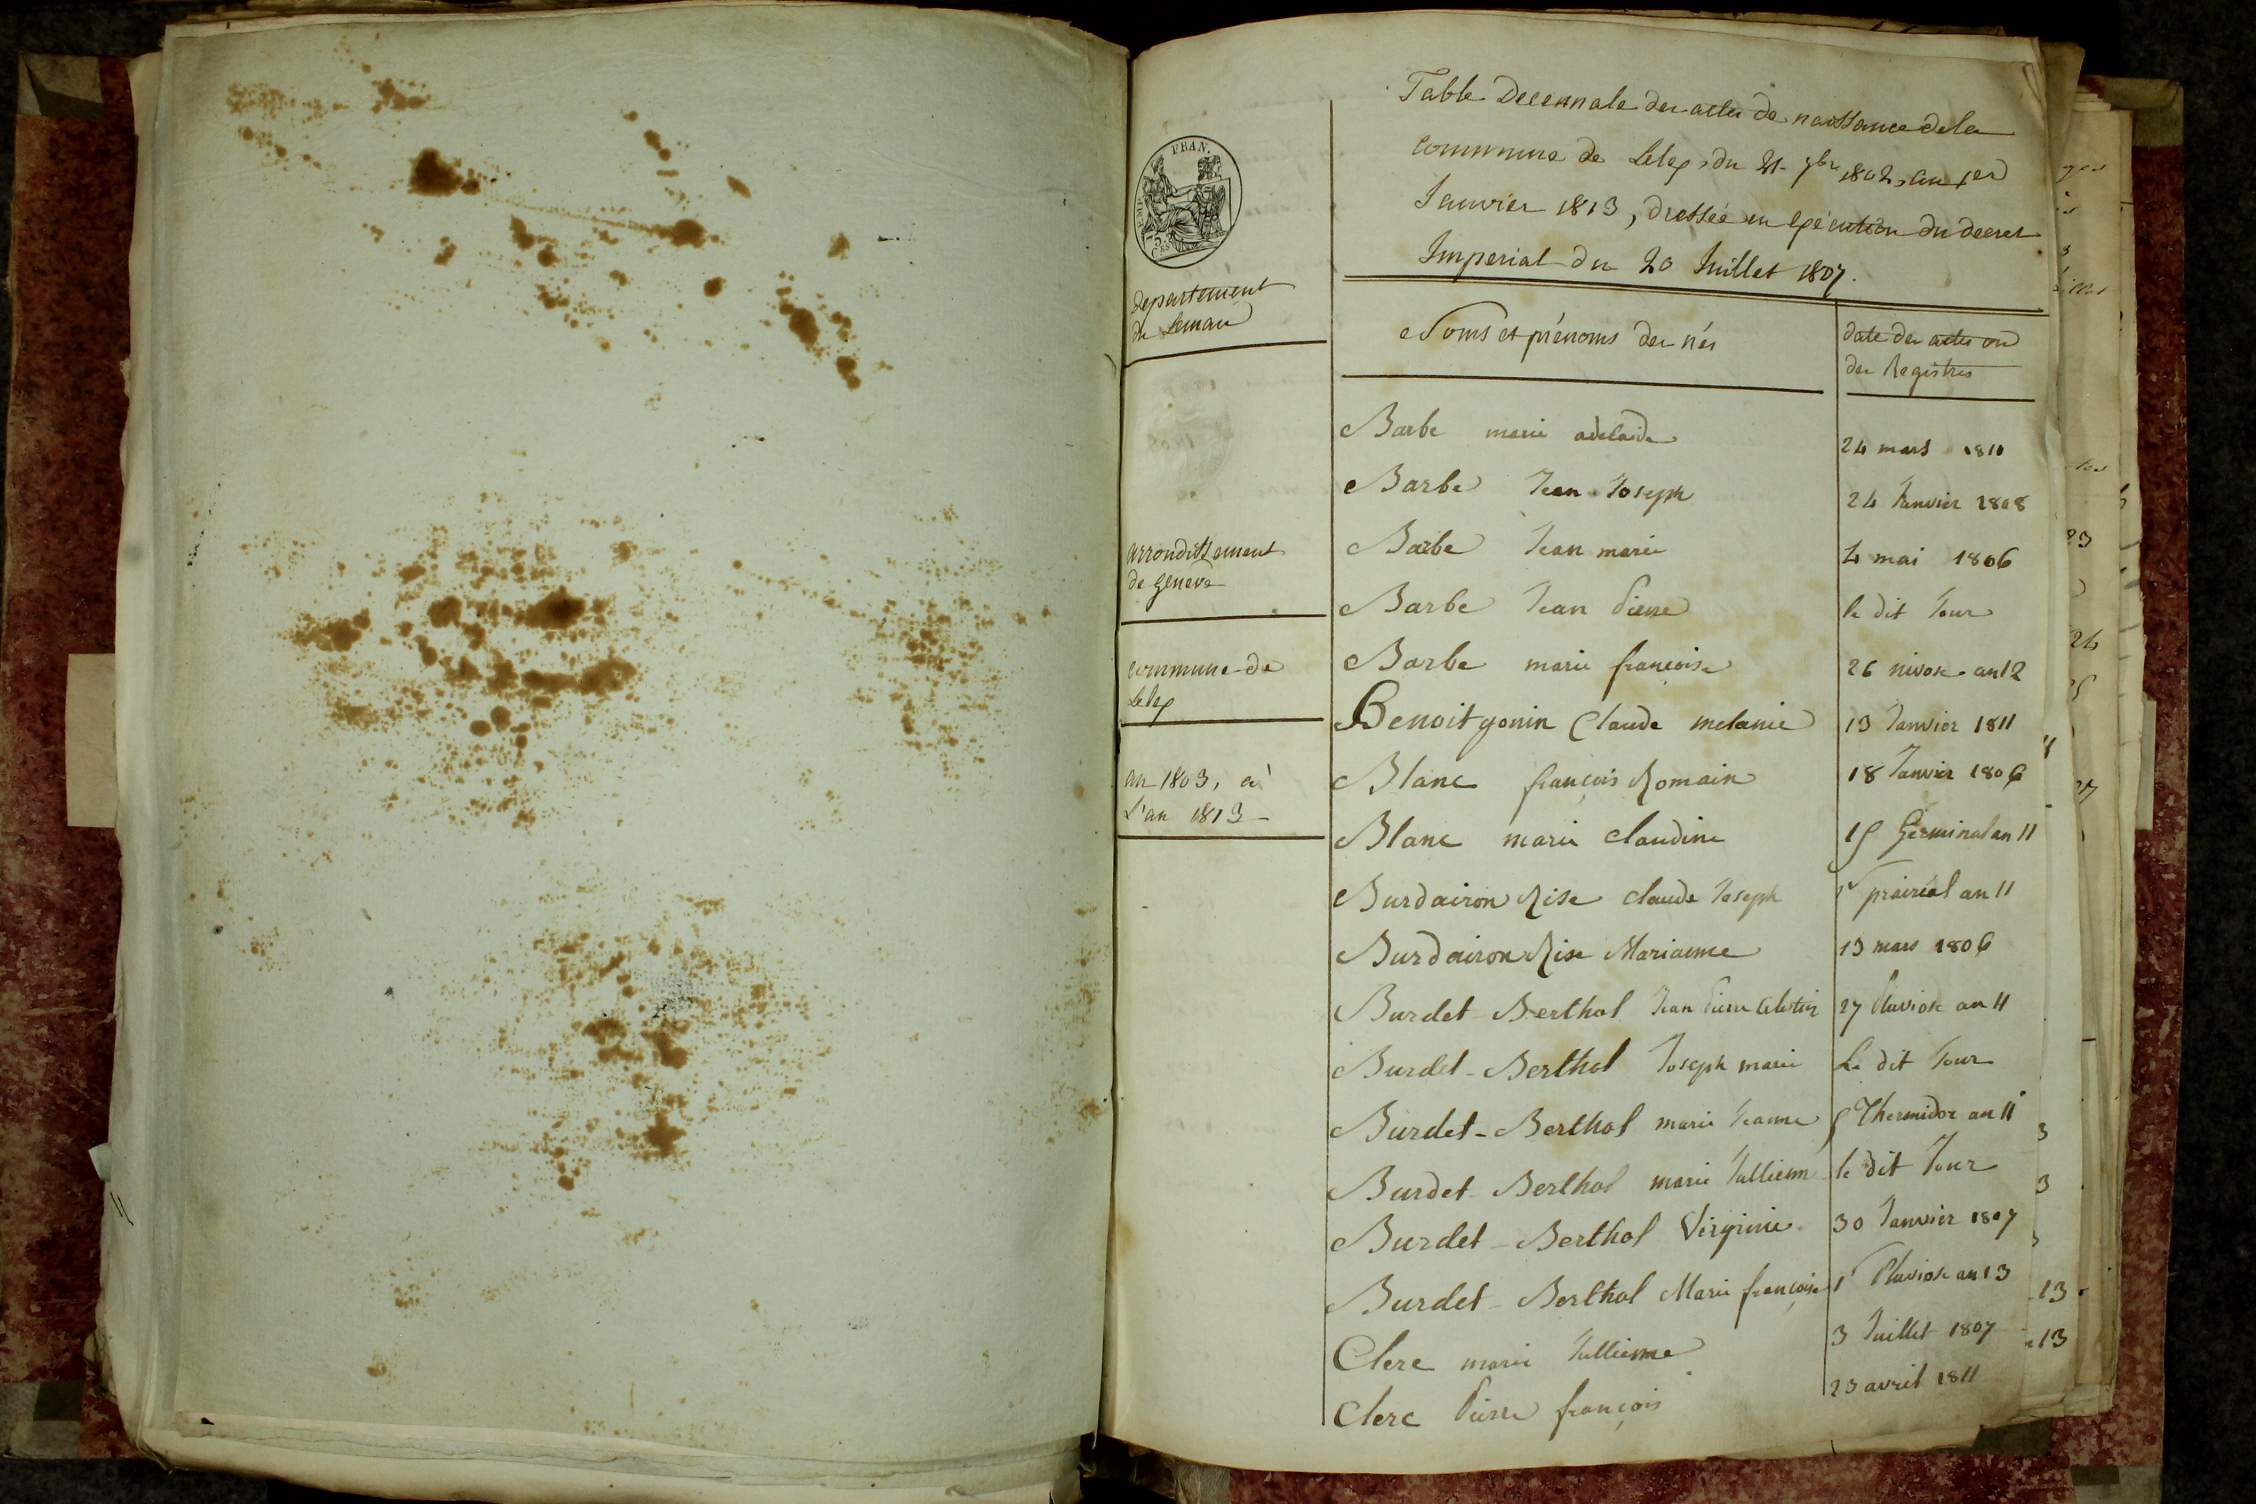 Table Decennale des actes de naissance de la
commune de Lelex, du 21 7bre 1802, au 1er
Janvier 1813, dressée en exécution du decret
Imperial du 20 Juillet 1807.
FRAN.
75
departement
du Leman
arrondissement
de geneve
commune de
Lelex
an 1803, à
L'an 1813
Noms et prénoms des nés
date des actes ou
des Registres
Barbe marie adelaide 24 mars 1811
Barbe Jean Joseph 24 Janvier 1808
Barbe Jean marie 4 mai 1806
Barbe Jean Pierre le dit Jour
Barbe marie françoise 26 nivose an 12
Benoitgonin Claude melanie 13 Janvier 1811
Blanc françois Romain 18 Janvier 1806
Blanc marie claudine 15 Germinal an 11
Burdairon Rise claude Joseph 1r prairéal an 11
Burdairon Rise Marianne 13 mars 1806
Burdet Berthol Jean Pierre Celestin 27 Pluviose an 11
Burdet-Berthol Joseph marie Le dit Jour
Burdet-Berthol marie Jeanne 5 Thermidor an 11
Burdet-Berthol marie Jullienne le dit Jour
Burdet-Berthol Virginie 30 Janvier 1807
Burdet-Berthol Marie françoise 1r Pluviose an 13
Clerc marie Jullienne 3 Juillet 1807
Clerc Pierre françois 23 avril 1811